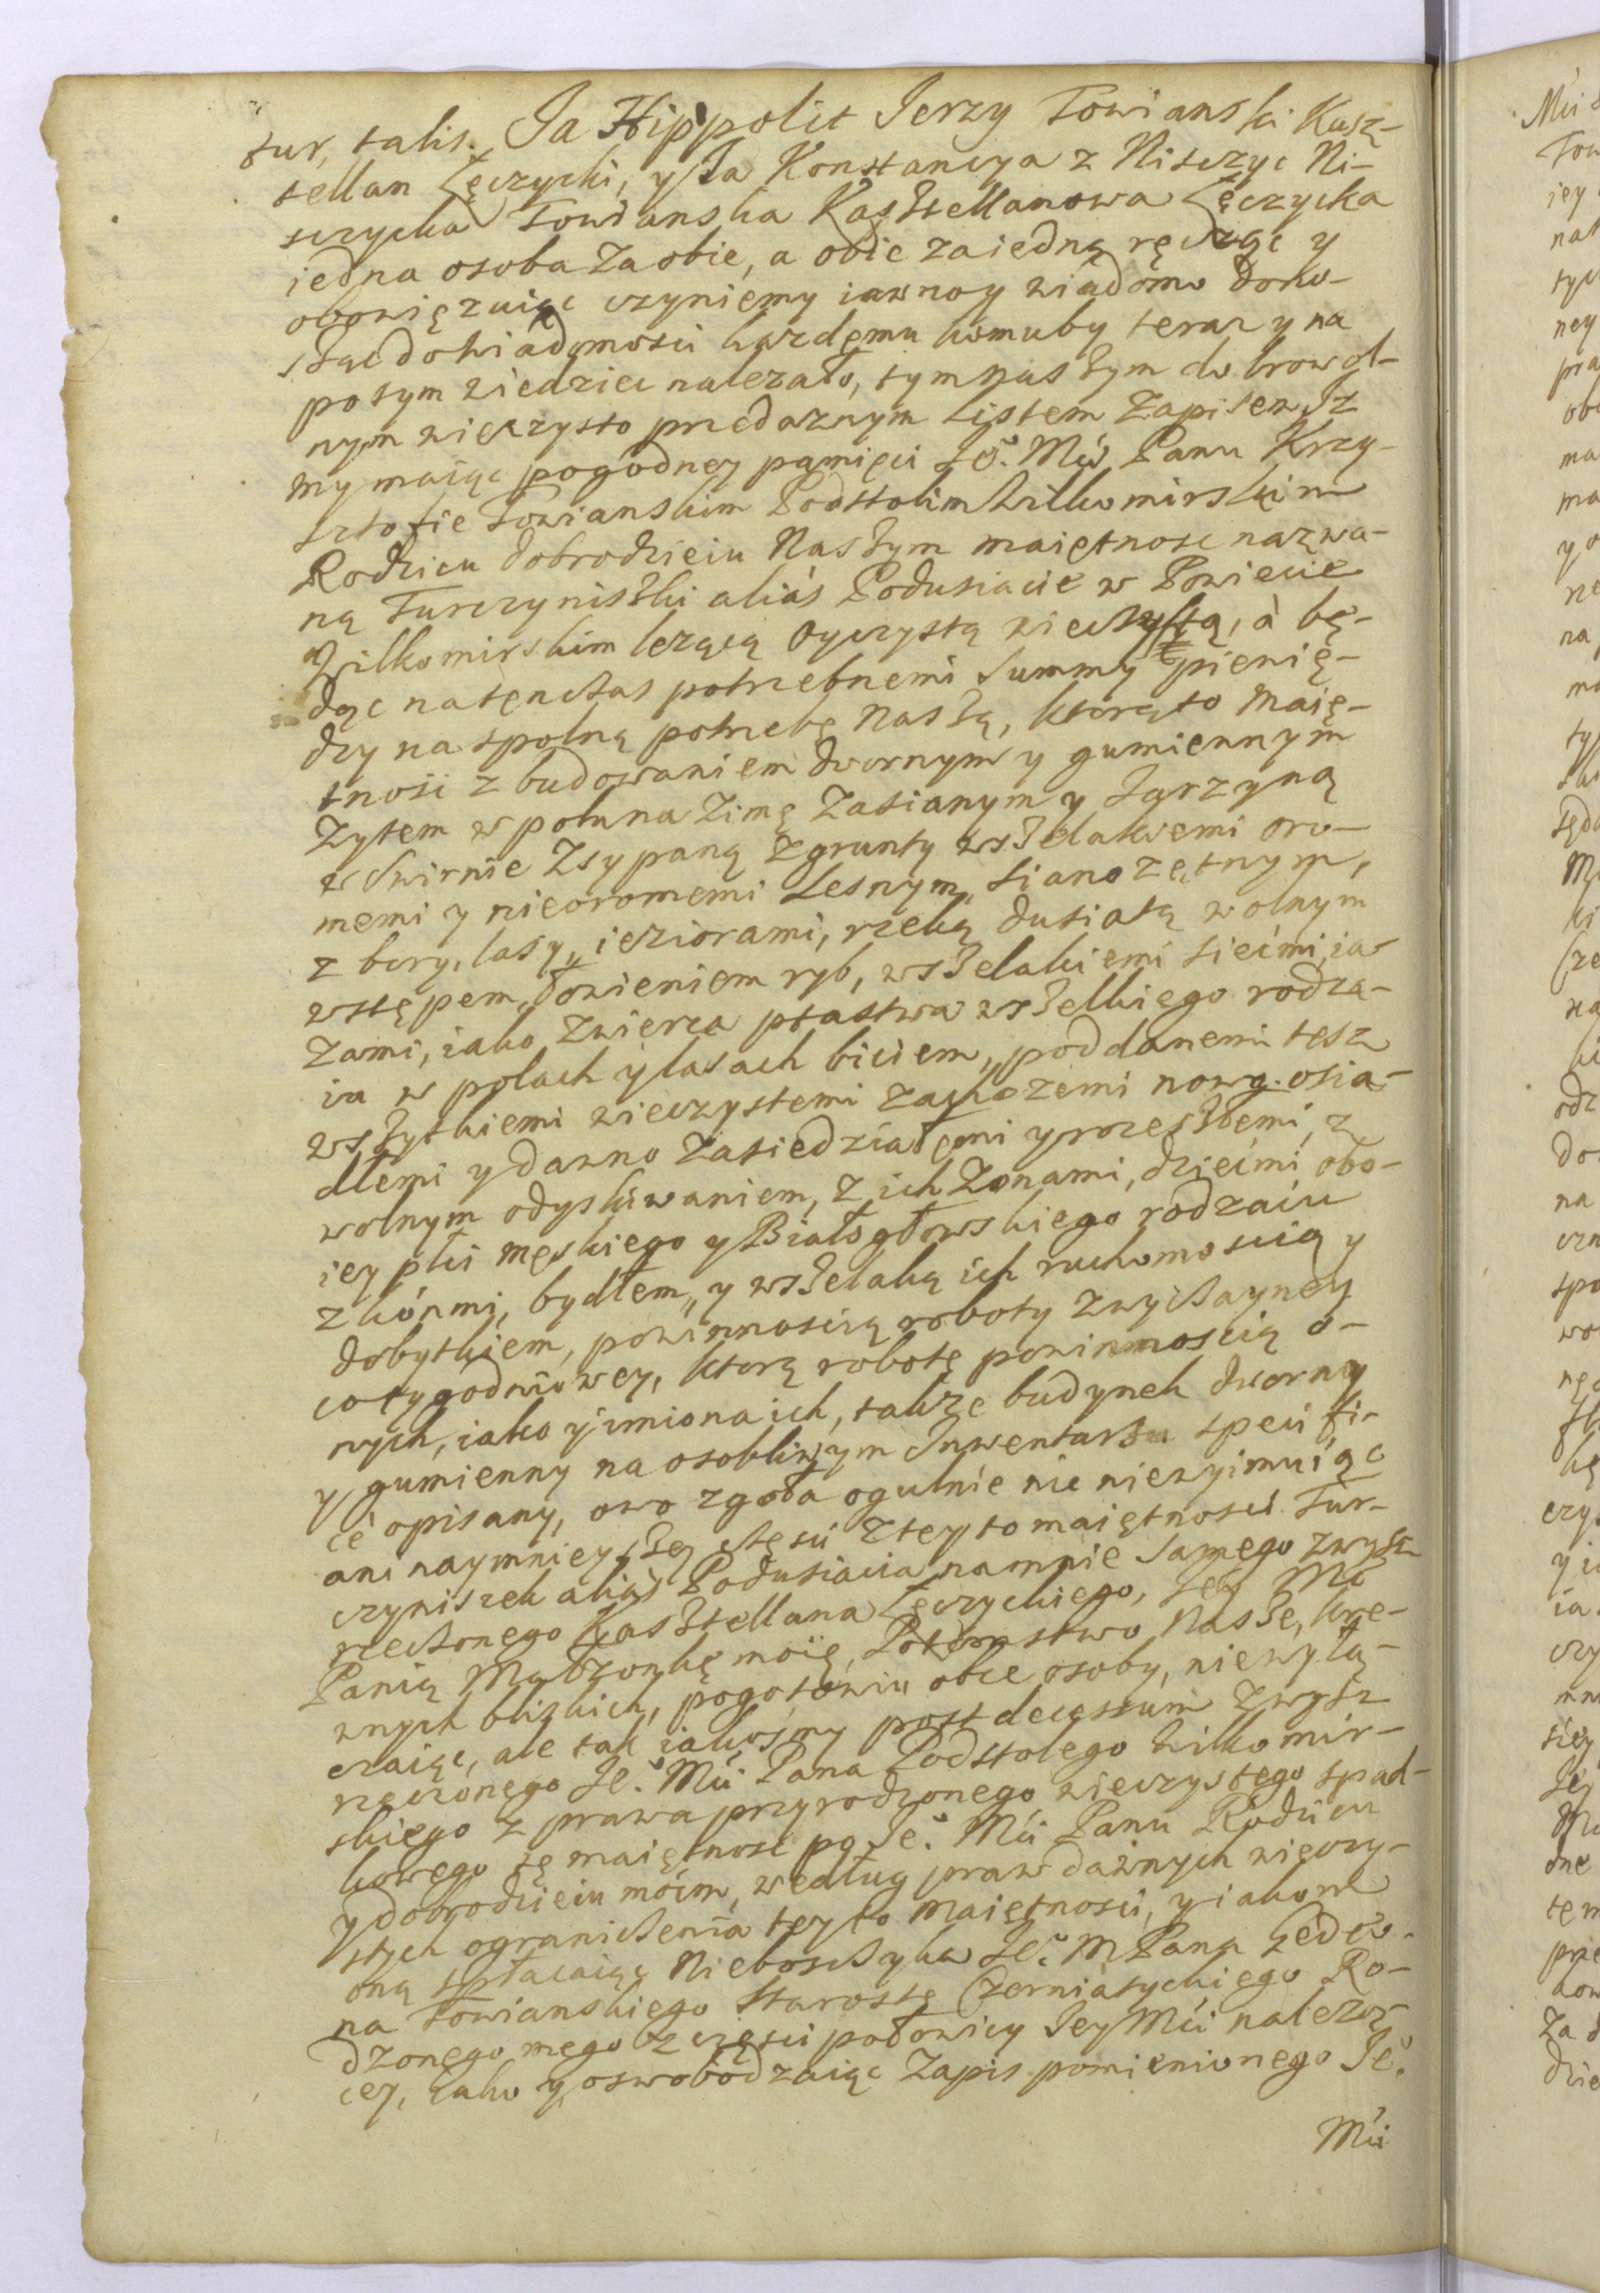 tur, talis. Ja Hippolit Jerzy Towianski Kasz-
tellan Łęczycki, y Ja Konstancya z Nisczyc Ni-
sczycka Towianska Kasztellanowa Łęczycka
iedna osoba za obie, a obie za iedną ręcząc y
obowięzuiąc czyniemy iawno y wiadomo dono-
sząc do wiadomosci kazdemu komuby teraz y na
potym wiedziec nalezało, tym naszym dobrowol-
nym wieczysto przedaznym Listem Zapisem Jz
my maiąc pogodney pamięci Jė. Mći Panu Krzy-
sztofie Towianskim Podstolim Wilkomirskim
Rodzicu dobrodzieiu Naszym maiętnosc nazwa-
ną Turczyniszki aliàs Podusiacie w Powiecie
Wilkomirskim lezącą Oyczystą wieczystą, à bę-
dąc natenczas potrzebnemi Summy pienię-
dzy na spolną potrzebę Naszą, ktorąto Maię-
tnosi z budowaniem dwornym y gumiennym
Zytem w polu na Zimę Zasianym y Jarzyną
w Swirnie Zsypaną z grunty wszelakiemi oro-
memi y nieoromemi Lesnym, sianozętnym,
z bory, lasy, ieziorami, rzeką dusiatą wolnym
wstępem, łowieniem ryb, wszelakiemi siećmi, ia-
zami, iako Zwierza ptastwa wszelkiego rodza-
iu w polach y lasach biciem, poddanemi tesz
wszytkiemi wieczystemi zachozemi nowo osia-
dłemi y dawno Zasiedziałemi y rozeszłemi, z
wolnym odyskiwaniem, z ich Zonami, dziećmi obo-
iey płci męskiego y Białogłowskiego rodzaiu
z kónmi, bydłem, y wszelaką ich ruchomoscią y
dobytkiem, powinnoscią roboty zwyczayney
cotygodniowey, ktorą robotę powinnoscią o-
nych, iako y imiona ich, także budynek dworny
y gumienny na osobliwym Jnwentarzu specifi-
cè opisany, owo zgoła ogulnie nic niewyimuiąc
ani naymnieyszey częsci z tey to maiętnosci Tur-
czyniszek aliàs Podusiacia na mnie Samego zwysz
rzeczonego Kasztellana Łęczyckiego, Jey Mć
Panią Małzonkę moię, Potomstwo Nasze, kre-
wnych blizkich, pogotowiu obce osoby, niewyłą-
czaiąc, ale tak iakosmy post decessum zwysz
rzeczonego Jė. Mći Pana Podstolego Wilkomir-
skiego z prawa przyrodzonego wieczystego spad-
kowego tę maiętnosc po Jė. Mći Panu Rodzicu
y dobrodzieiu moim, według praw dawnych wieczy-
stych ograniczenia tey to Maiętnosci, y iakom
oną spłacaiąc Nieboszczyka Jė. M Pana Gedeo-
na Towianskiego Starostę Czerniatyckiego Ro-
dzonego mego z częsci połowicy Jey Mći nalezą-
cey, iako y oswobodzaiąc Zapis pomienionego Jė.
Mći